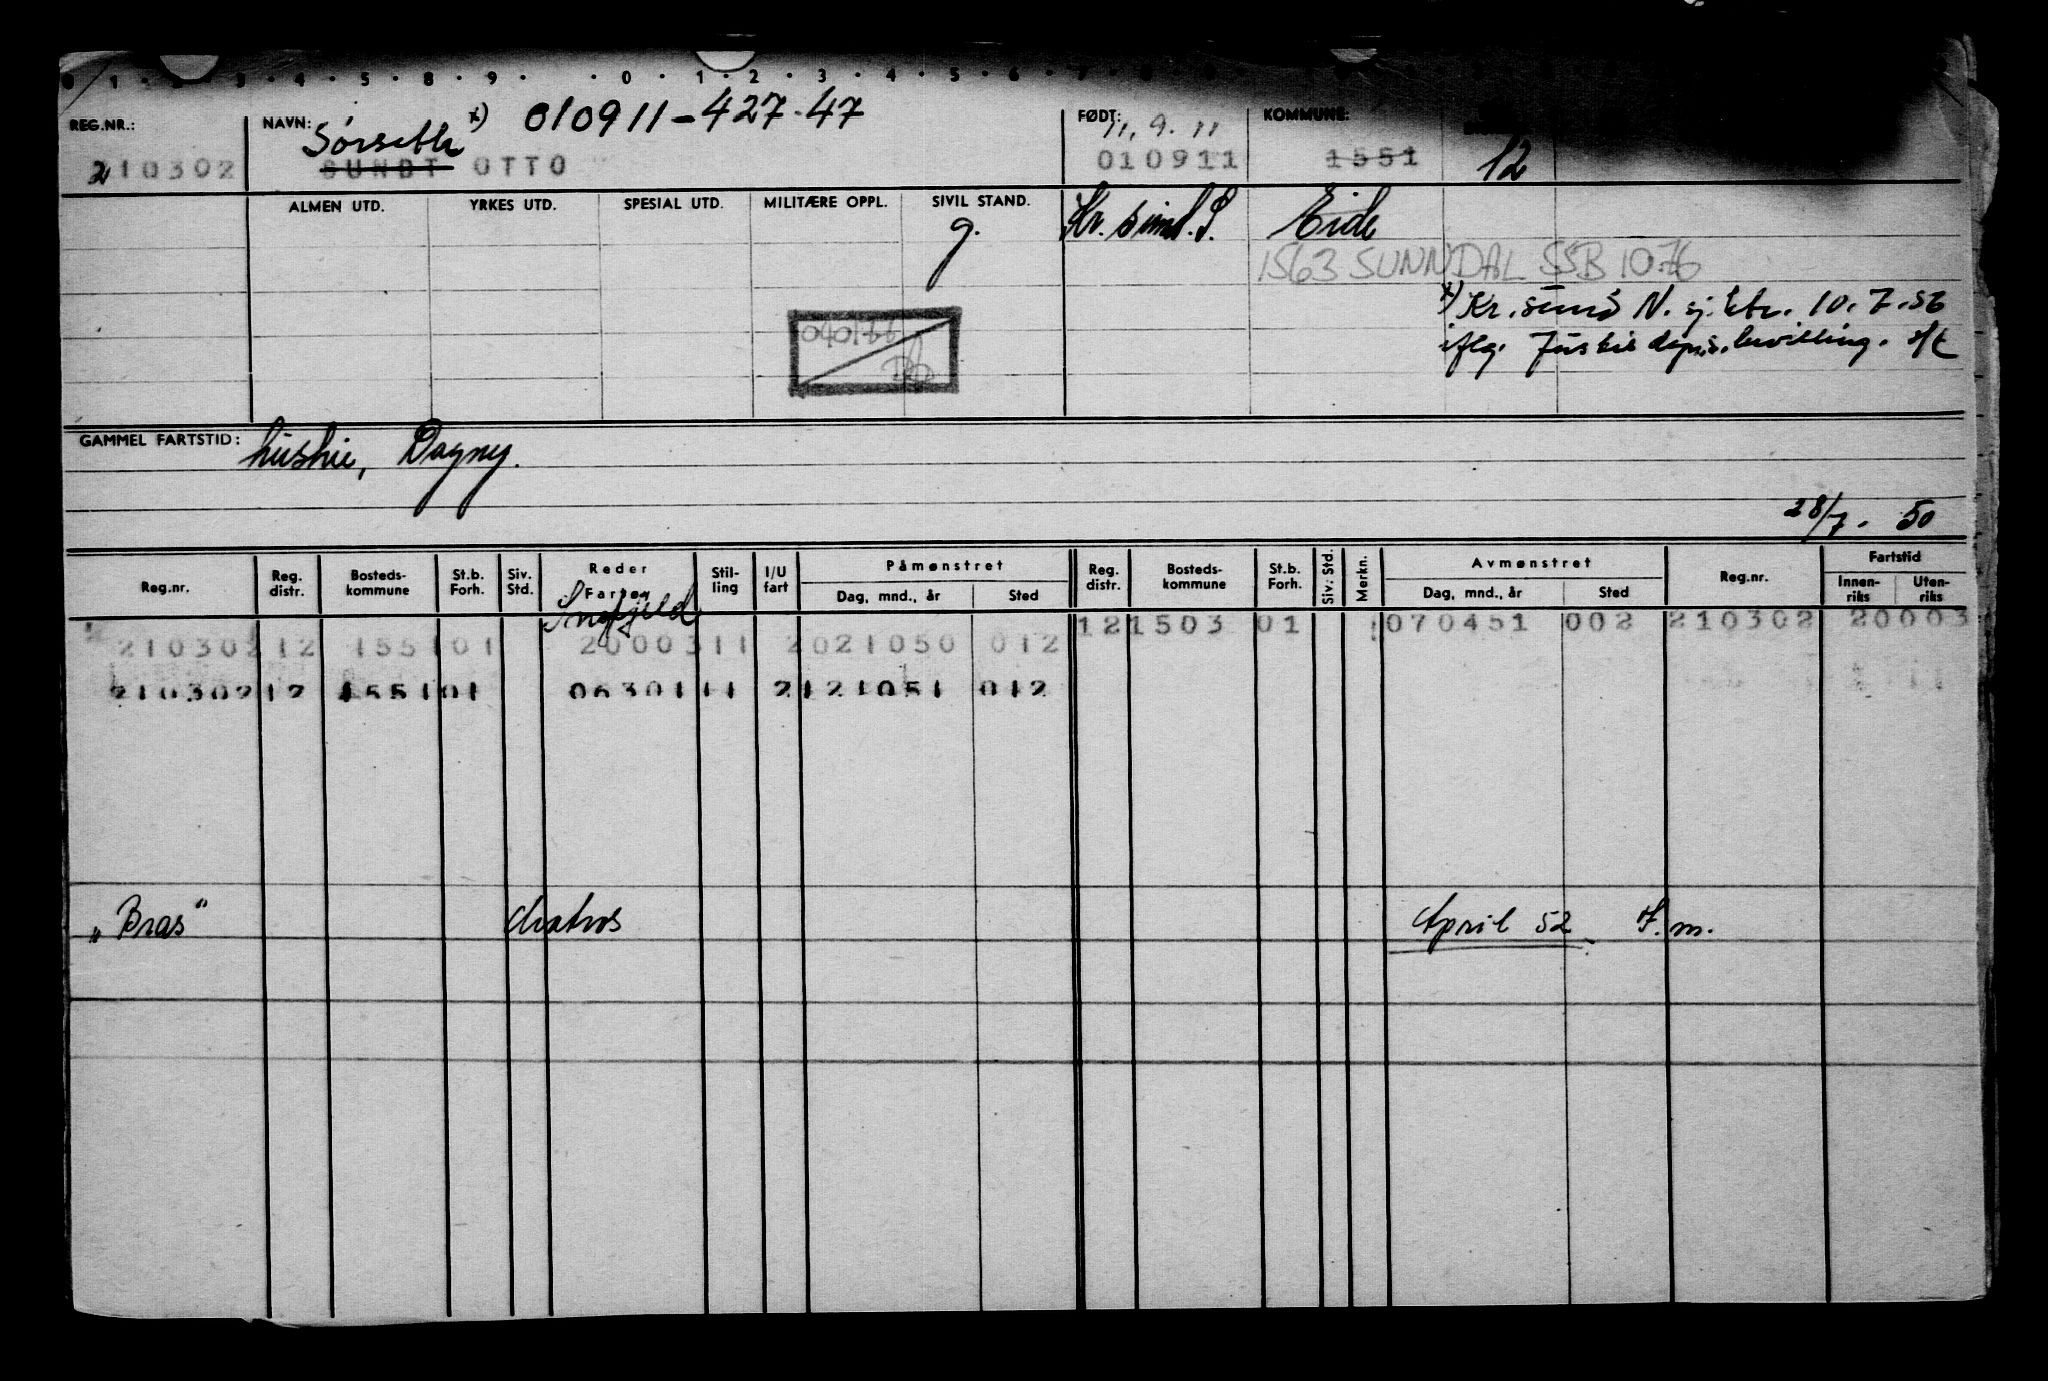 0 1 · 2 · 3 · 4 · 5 · 8 · 9 · · 0 · 1 · 2 · 3 · 4 · 5 · 6 · 7
REG.NR.: NAVN: x) 010911-427-47 FØDT: 11. 9. 11 KOMMUNE:
Sørseth
210302 SUNDT OTTO 010911 1551 12
ALMEN UTD. YRKES UTD. SPESIAL UTD. MILITÆRE OPPL. SIVIL STAND. Kr. sund. S. Eide
g.
1563 SUNNDAL SSB 10.76
x) Kr. sund N. sj. ktr. 10. 7. 56
iflg. Justis dep.s. bevilling.
GAMMEL FARTSTID: hustru, Dagny.
28/7. 50
Reg.nr. Reg. distr. Bosteds-kommune St.b. Forh. Siv. Std. Reder Farkøy Stil-ling I/U fart Påmønstret Dag, mnd., år Sted Reg. distr. Bosteds-kommune St.b. Forh. Siv. Std. Merkn. Avmønstret Dag, mnd., år Sted Reg.nr. Fartstid Innen-riks Uten-riks
210302 12 1551 01 20003 11 2 021050 012 12 1503 01 070451 002 210302 20003
210302 12 1551 01 06301 11 2 121051 012
„Bras" Matros April 52 F.m.